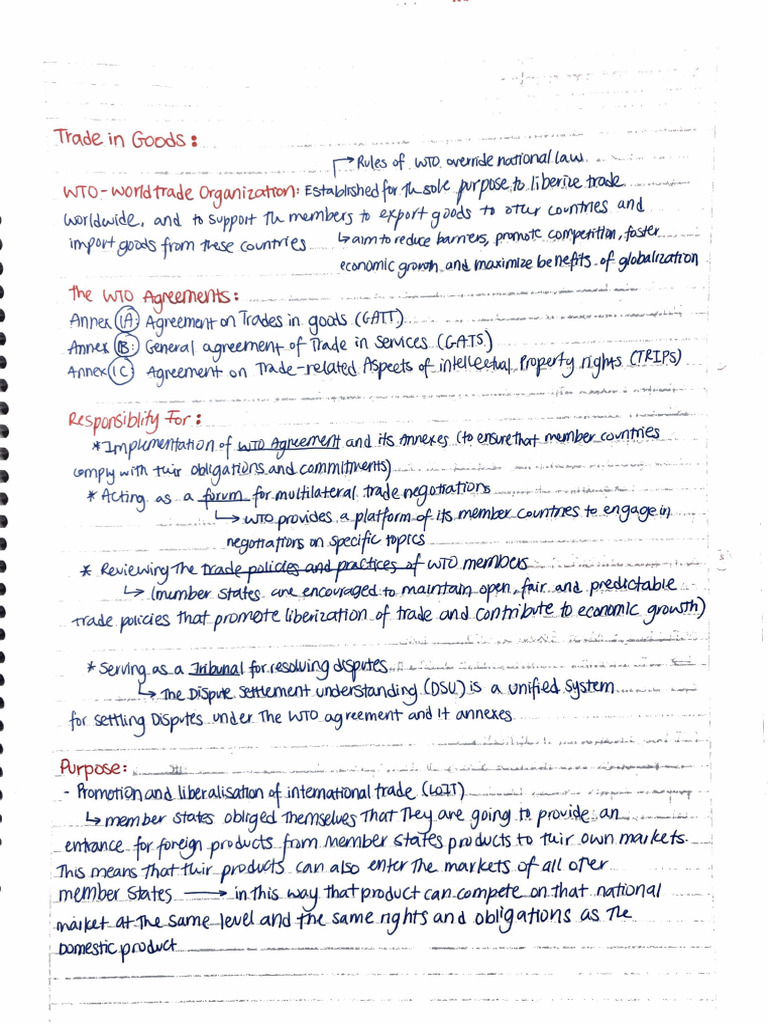 Trade in Goods:
Rules of WTO override national law
WTO - World trade Organization: Established for th sole purpose to liberize trade
worldwide, and to support th members to export goods to other countries and
import goods from these countries
aim to reduce barriers, promote competition, foster
economic growth and maximize benefits of globalization
The WTO Agreements:
Annex 1A: Agreement on Trades in goods (GATT)
Annex 1B: General agreement of Trade in Services (GATS)
Annex 1C Agreement on Trade-related Aspects of intellectual Property rights (TRIPS)
Responsiblity For:
* Implementation of WTO Agreement and its Annexes (to ensure that member countries
comply with their obligations and commitments)
* Acting as a forum for multilateral trade negotirations
WTO provides a platform of its member countries to engage in
negotirations on specific topics
* Reviewing The trade policies and practices of WTO members
(member states are encouraged to maintain open, fair and predictable
trade policies that promote liberization of trade and contribute to economic growth)
* Serving as a Tribunal for resolving disputes
The Dispute Settlement understanding (DSU) is a unified System
for settling Disputes under The WTO agreement and it annexes
Purpose:
- Promotion and liberalisation of international trade (LOIT)
member states obliged themselves That They are going to provide an
entrance for foreign products from member states products to their own markets.
This means that their products can also enter The markets of all other
member States → in this way that product can compete on that national
market at the same level and the same rights and obligations as The
Domestic product